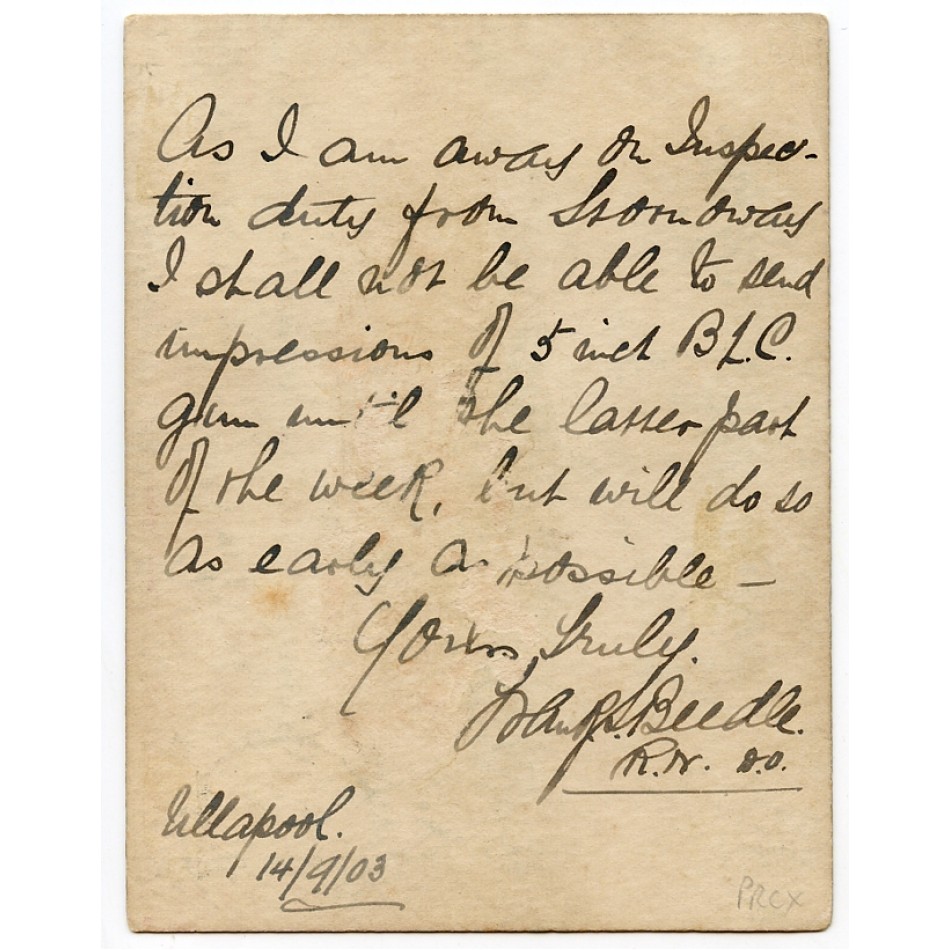 As I am away on Inspec-
tion duty from Stornoway
I shall not be able to send
impressions of 5 inch B.L.C.
gun until the latter part
of the week, but will do so
as early as possible –
Yours truly.
Beedle.
R.N.
Ullapool.
14/9/03
PRCX